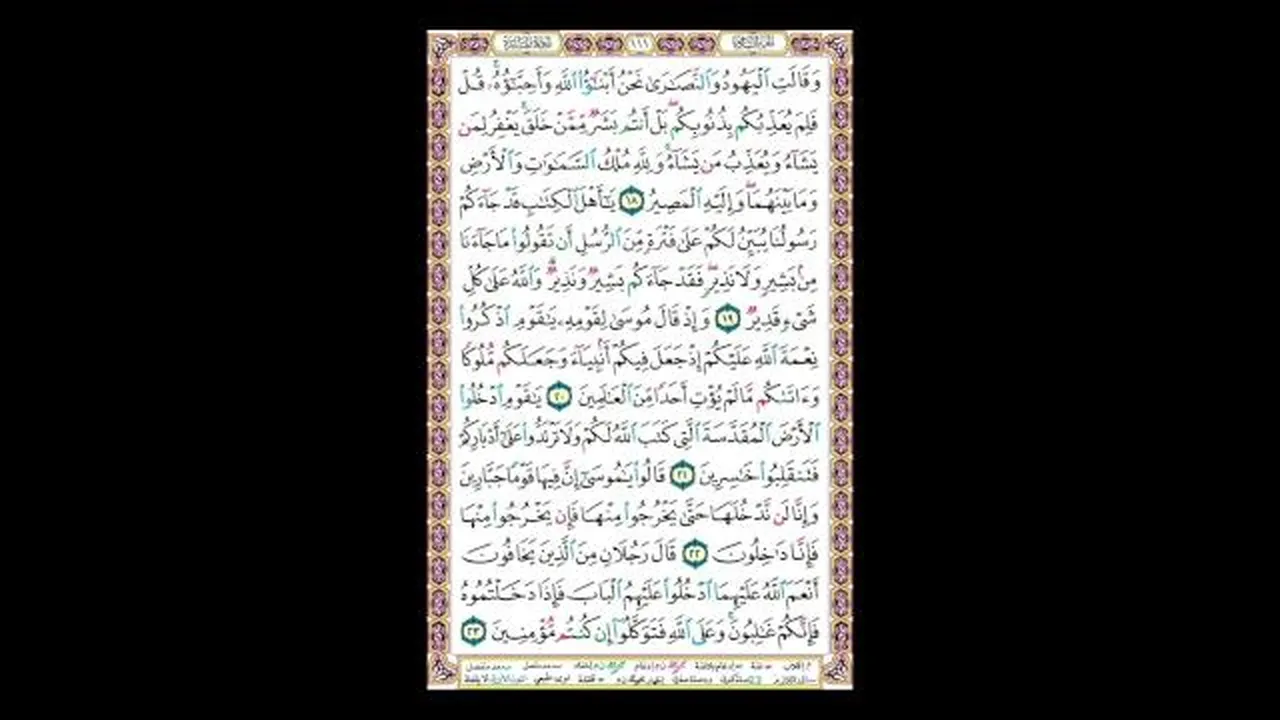 الجزء السادس ١١١ سورة المائدة
وَقَالَتِ ٱلْيَهُودُ وَٱلنَّصَـٰرَىٰ نَحْنُ أَبْنَـٰٓؤُا۟ ٱللَّهِ وَأَحِبَّـٰٓؤُهُۥ ۚ قُلْ
فَلِمَ يُعَذِّبُكُم بِذُنُوبِكُم ۖ بَلْ أَنتُم بَشَرٌ مِّمَّنْ خَلَقَ ۚ يَغْفِرُ لِمَن
يَشَآءُ وَيُعَذِّبُ مَن يَشَآءُ ۚ وَلِلَّهِ مُلْكُ ٱلسَّمَـٰوَٰتِ وَٱلْأَرْضِ
وَمَا بَيْنَهُمَا ۖ وَإِلَيْهِ ٱلْمَصِيرُ ١٨ يَـٰٓأَهْلَ ٱلْكِتَـٰبِ قَدْ جَآءَكُمْ
رَسُولُنَا يُبَيِّنُ لَكُمْ عَلَىٰ فَتْرَةٍ مِّنَ ٱلرُّسُلِ أَن تَقُولُوا۟ مَا جَآءَنَا
مِنۢ بَشِيرٍ وَلَا نَذِيرٍ ۖ فَقَدْ جَآءَكُم بَشِيرٌ وَنَذِيرٌ ۗ وَٱللَّهُ عَلَىٰ كُلِّ
شَىْءٍ قَدِيرٌ ١٩ وَإِذْ قَالَ مُوسَىٰ لِقَوْمِهِۦ يَـٰقَوْمِ ٱذْكُرُوا۟
نِعْمَةَ ٱللَّهِ عَلَيْكُمْ إِذْ جَعَلَ فِيكُمْ أَنۢبِيَآءَ وَجَعَلَكُم مُّلُوكًا
وَءَاتَىٰكُم مَّا لَمْ يُؤْتِ أَحَدًا مِّنَ ٱلْعَـٰلَمِينَ ٢٠ يَـٰقَوْمِ ٱدْخُلُوا۟
ٱلْأَرْضَ ٱلْمُقَدَّسَةَ ٱلَّتِى كَتَبَ ٱللَّهُ لَكُمْ وَلَا تَرْتَدُّوا۟ عَلَىٰٓ أَدْبَارِكُمْ
فَتَنقَلِبُوا۟ خَـٰسِرِينَ ٢١ قَالُوا۟ يَـٰمُوسَىٰٓ إِنَّ فِيهَا قَوْمًا جَبَّارِينَ
وَإِنَّا لَن نَّدْخُلَهَا حَتَّىٰ يَخْرُجُوا۟ مِنْهَا فَإِن يَخْرُجُوا۟ مِنْهَا
فَإِنَّا دَٰخِلُونَ ٢٢ قَالَ رَجُلَانِ مِنَ ٱلَّذِينَ يَخَافُونَ
أَنْعَمَ ٱللَّهُ عَلَيْهِمَا ٱدْخُلُوا۟ عَلَيْهِمُ ٱلْبَابَ فَإِذَا دَخَلْتُمُوهُ
فَإِنَّكُمْ غَـٰلِبُونَ ۚ وَعَلَى ٱللَّهِ فَتَوَكَّلُوٓا۟ إِن كُنتُم مُّؤْمِنِينَ ٢٣